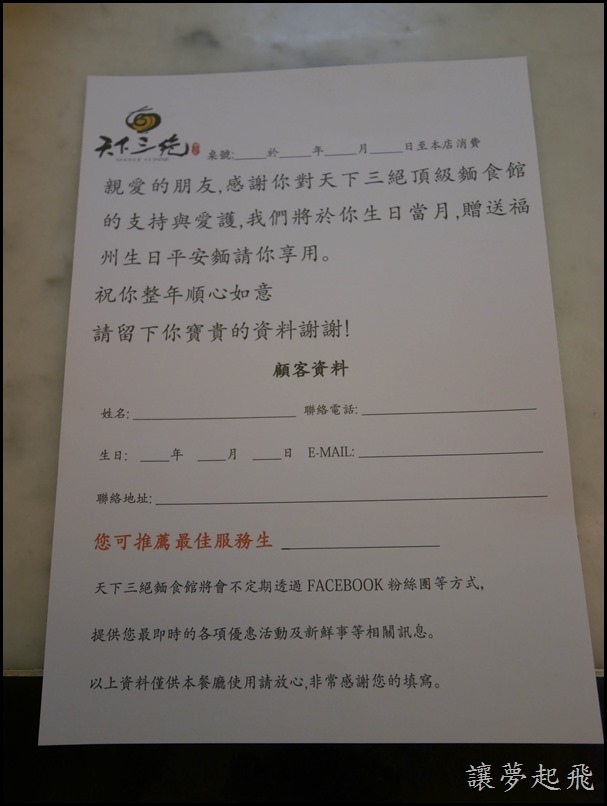 天下三絕
桌號:____於____年____月____日至本店消費
親愛的朋友,感謝你對天下三絕頂級麵食館
的支持與愛護,我們將於你生日當月,贈送福
州生日平安麵請你享用。
祝你整年順心如意
請留下你寶貴的資料謝謝!
顧客資料
姓名:____ 聯絡電話:____
生日: ____年 ____月 ____日 E-MAIL:____
聯絡地址:____
您可推薦最佳服務生 ____
天下三絕麵食館將會不定期透過 FACEBOOK 粉絲團等方式,
提供您最即時的各項優惠活動及新鮮事等相關訊息。
以上資料僅供本餐廳使用請放心,非常感謝您的填寫。
讓夢起飛